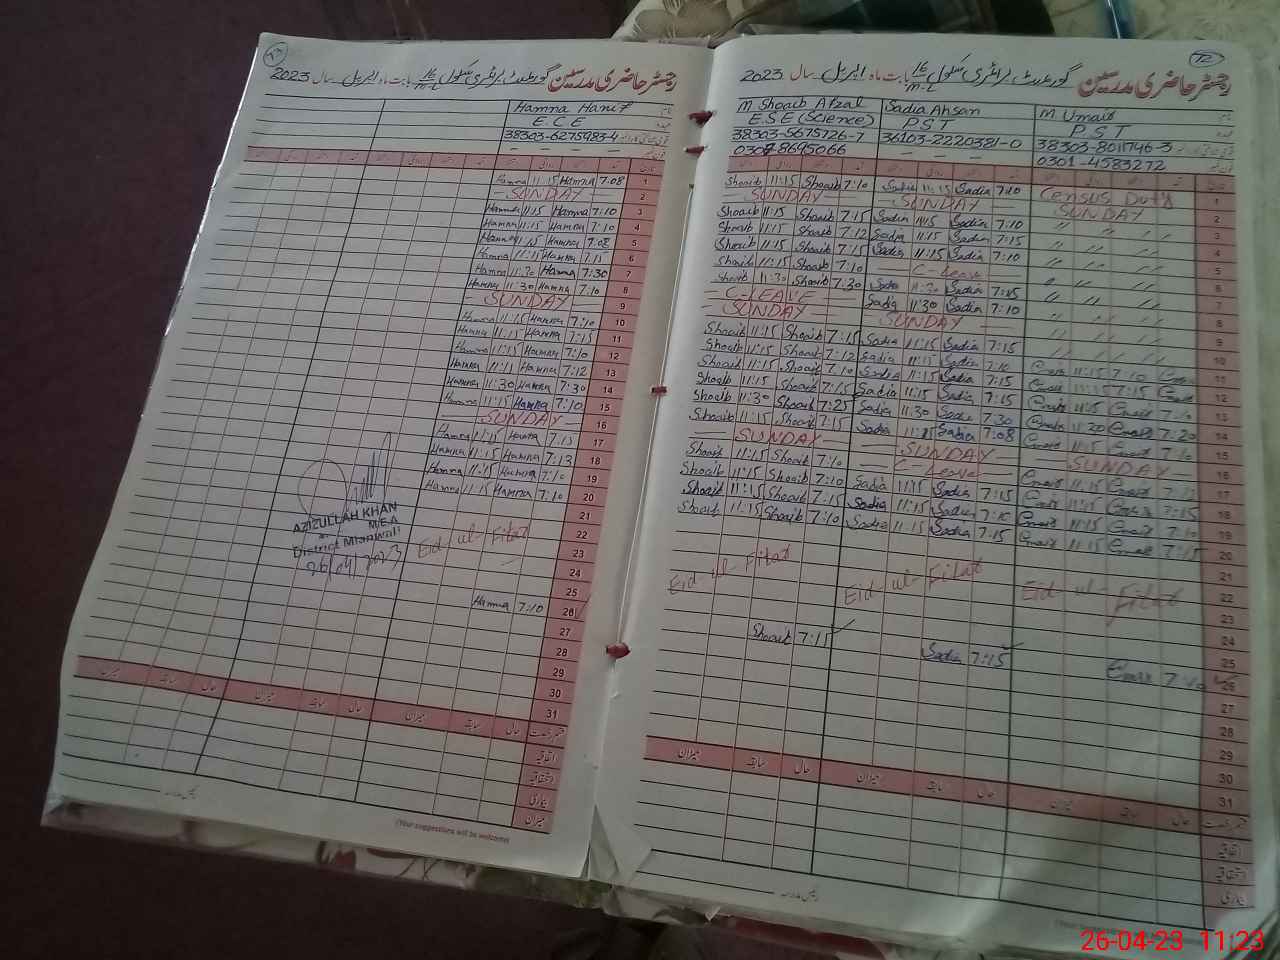 72
رجسٹر حاضری مدرسین گورنمنٹ پرائمری سکول 16 M-L بابت ماہ اپریل سال 2023
M Shoaib Afzal
Sadia Ahsan
M Umair
E.S.E (Science)
PST
PST
38303-5675726-7
36103-2220381-0
38303-8011746-3
0307-8695066
0301-4583272
1 Shoaib 11:15 Shoaib 7:10 Sadia 11:15 Sadia 7:10 Census Duty
2 SUNDAY SUNDAY SUNDAY
3 Shoaib 11:15 Shoaib 7:15 Sadia 11:15 Sadia 7:10 " " "
4 Shoaib 11:15 Shoaib 7:12 Sadia 11:15 Sadia 7:15 " " "
5 Shoaib 11:15 Shoaib 7:15 Sadia 11:15 Sadia 7:10 " " "
6 Shoaib 11:15 Shoaib 7:10 C-Leave " " "
7 Shoaib 11:30 Shoaib 7:30 Sadia 11:30 Sadia 7:15 " " "
8 C-LEAVE Sadia 11:30 Sadia 7:10 " " "
9 SUNDAY SUNDAY " " "
10 Shoaib 11:15 Shoaib 7:15 Sadia 11:15 Sadia 7:15 " " "
11 Shoaib 11:15 Shoaib 7:12 Sadia 11:15 Sadia 7:10 11:15 7:10
12 Shoaib 11:15 Shoaib 7:10 Sadia 11:15 Sadia 7:15 11:15 7:15
13 Shoaib 11:15 Shoaib 7:15 Sadia 11:15 Sadia 7:15 11:15 7:10
14 Shoaib 11:30 Shoaib 7:25 Sadia 11:30 Sadia 7:30 11:20 7:20
15 Shoaib 11:15 Shoaib 7:15 Sadia 11:15 Sadia 7:08 11:15 7:10
16 SUNDAY SUNDAY SUNDAY
17 Shoaib 11:15 Shoaib 7:10 C-Leave 11:15 7:12
18 Shoaib 11:15 Shoaib 7:10 Sadia 11:15 Sadia 7:15 11:15 7:10
19 Shoaib 11:15 Shoaib 7:15 Sadia 11:15 Sadia 7:10 11:15 7:10
20 Shoaib 11:15 Shoaib 7:10 Sadia 11:15 Sadia 7:15 11:15 7:15
21
22 Eid-ul-Fitat Eid-ul-Fitat Eid-ul-Fitat
23
24
25
26 Shoaib 7:15 Sadia 7:15 7:10
27
28
29
30
31
میزان سابقہ حال میزان سابقہ حال میزان سابقہ حال قسم رخصت
اتفاقیہ
استحقاقیہ
بیماری
رئیس مدرسہ
رجسٹر حاضری مدرسین گورنمنٹ پرائمری سکول 16 M-L بابت ماہ اپریل سال 2023
Hamna Hanif
E C E
38303-6275983-4
1 Hamna 11:15 Hamna 7:08
2 SUNDAY
3 Hamna 11:15 Hamna 7:10
4 Hamna 11:15 Hamna 7:10
5 Hamna 11:15 Hamna 7:08
6 Hamna 11:15 Hamna 7:15
7 Hamna 11:30 Hamna 7:30
8 Hamna 11:30 Hamna 7:10
9 SUNDAY
10 Hamna 11:15 Hamna 7:10
11 Hamna 11:15 Hamna 7:15
12 Hamna 11:15 Hamna 7:10
13 Hamna 11:11 Hamna 7:12
14 Hamna 11:30 Hamna 7:30
15 Hamna 11:15 Hamna 7:10
16 SUNDAY
17 Hamna 11:15 Hamna 7:15
18 Hamna 11:15 Hamna 7:13
19 Hamna 11:15 Hamna 7:10
20 Hamna 11:15 Hamna 7:10
21
22
23 Eid-ul-Fitat
24
25
26 Hamna 7:10
27
28
29
30
31
AZIZULLAH KHAN
M.E.A
District Mianwali
26/04/2023
میزان سابقہ حال میزان سابقہ حال میزان سابقہ حال قسم رخصت
اتفاقیہ
استحقاقیہ
بیماری
میزان
رئیس مدرسہ
(Your suggestions will be welcome)
26-04-23 11:23